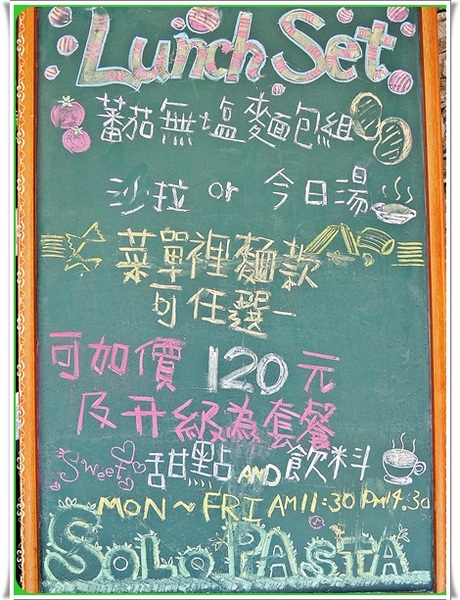 Lunch Set
蕃茄無塩麵包組
沙拉 or 今日湯
菜單裡麵款
可任選一
可加價 120 元
及升級為套餐
Sweet 甜點 AND 飲料
MON ~ FRI AM11:30 PM4.30
SOLO PASTA